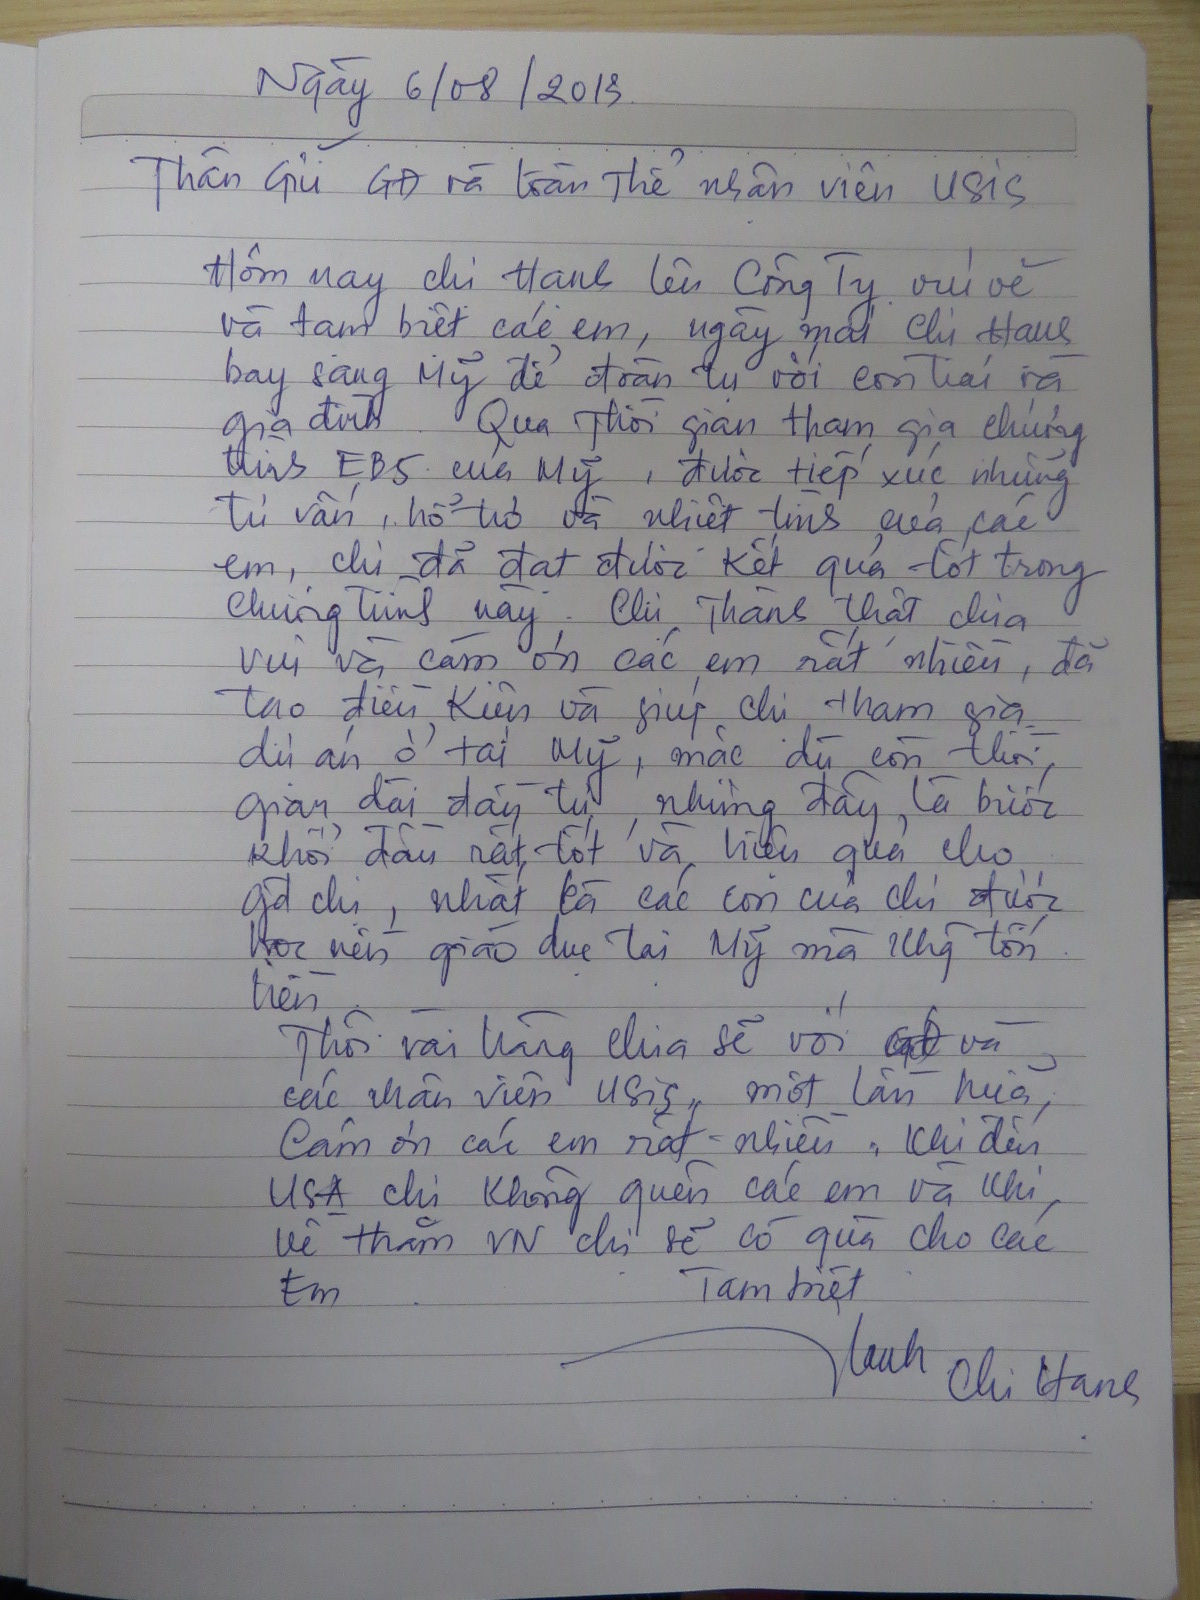 Ngày 6/08/2013
Thân Gửi GĐ và toàn Thể nhân viên USIS
Hôm nay chị Hạnh lên Công Ty vui vẽ
và tạm biệt các em, ngày mai Chị Hạnh
bay sang Mỹ để đoàn tụ với con trai và
gia đình. Qua Thời gian tham gia chương
trình EB5 của Mỹ, được tiếp xúc những
tư vấn, hổ trợ và nhiệt tình của các
em, chị đã đạt được kết quả tốt trong
chương trình này. Chị Thành thật chia
vui và cám ơn các em rất nhiều, đã
tạo điều kiện và giúp chị tham gia
dự án ở tại Mỹ, mặc dù còn thời
gian dài đầy tư, nhưng đây là bước
khởi đầu rất tốt và hiệu quả cho
gđ chị, nhất là các con của chị được
học nền giáo dục tại Mỹ mà khg tốn
tiền.
Thôi vài hàng chia sẽ với GĐ và
các nhân viên USIS, một lần nữa,
Cám ơn các em rất nhiều. Khi đến
USA chị không quên các em và khi
về thăm VN chị sẽ có quà cho các
Em Tạm biệt
Hạnh Chị Hạnh